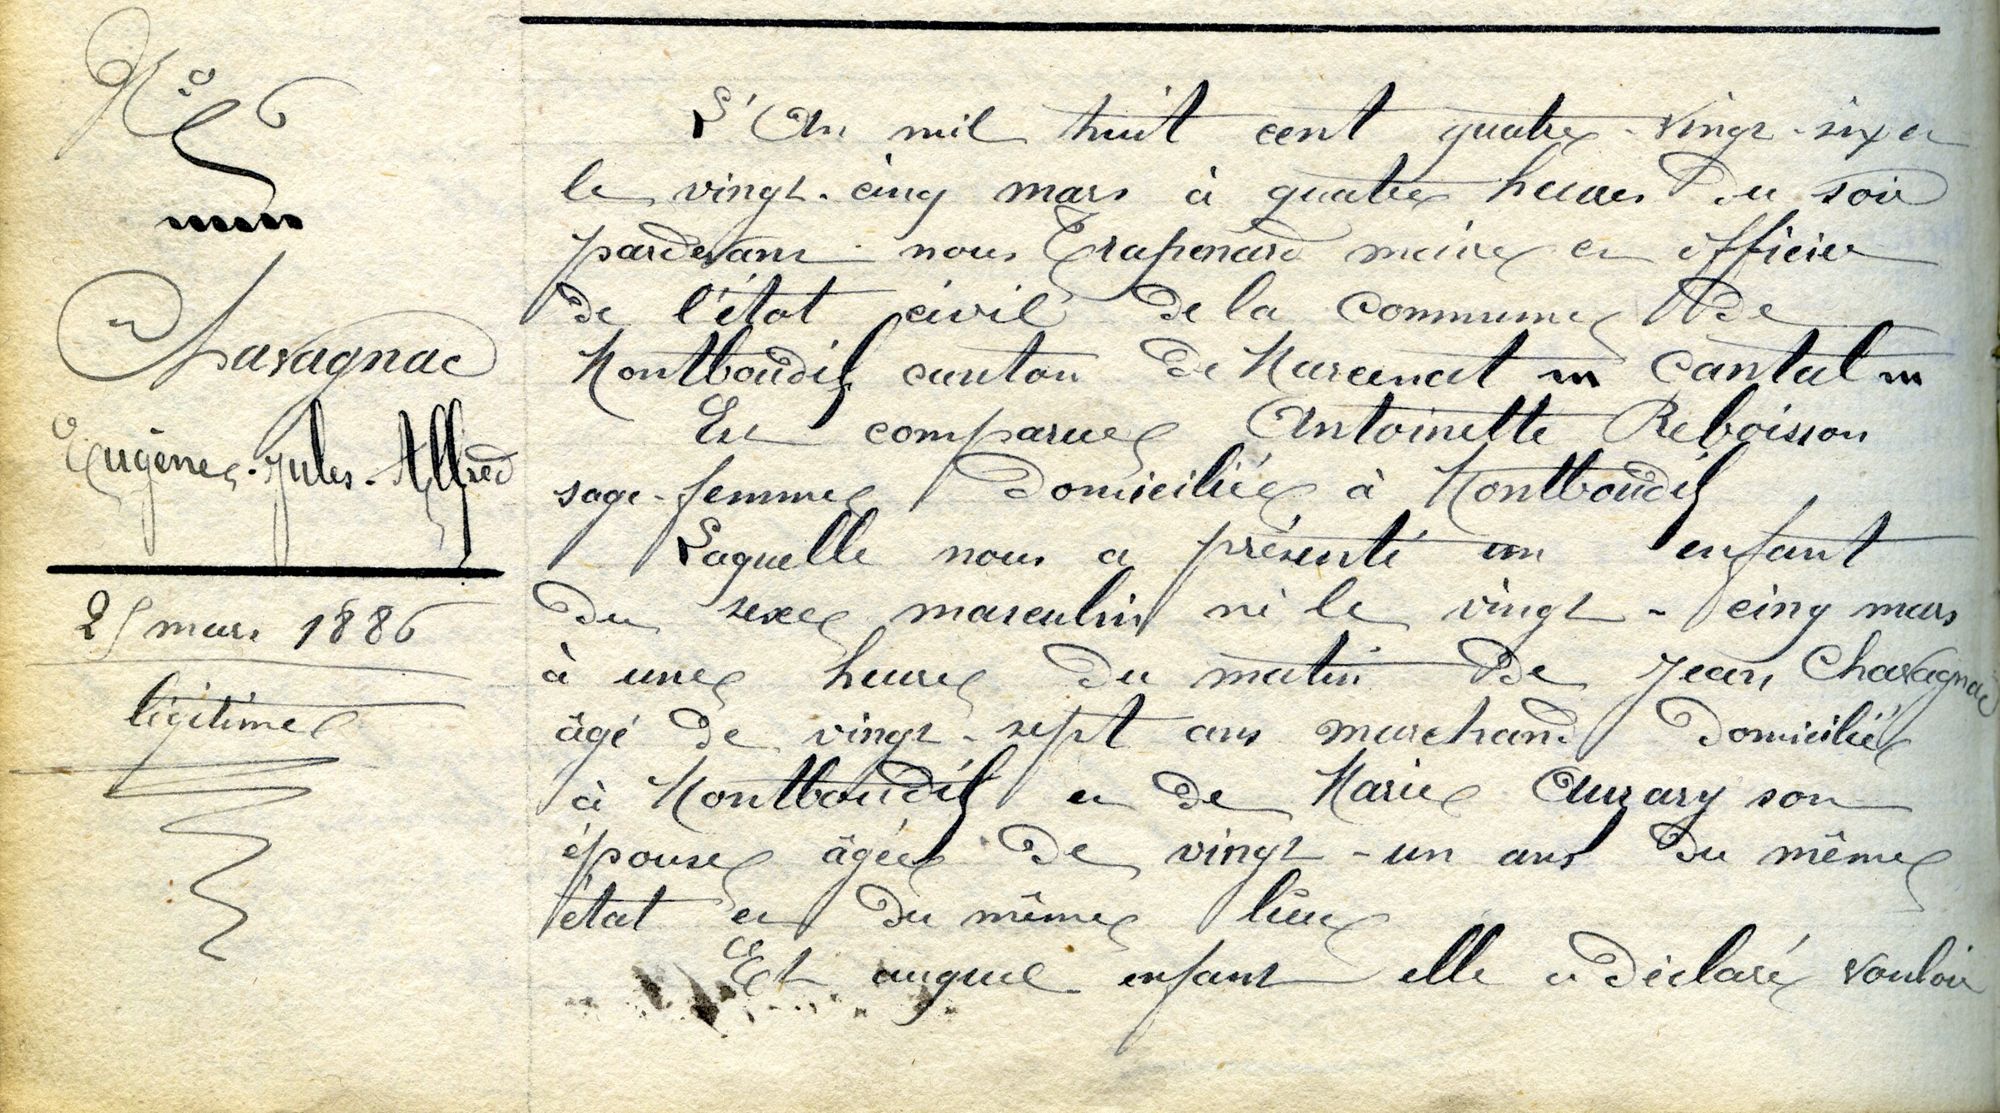 N° 6
Chavagnac
Eugène-Jules-Alfred
25 mars 1886
légitime
L'An mil huit cent quatre-vingt-six et
le vingt-cinq mars à quatre heures du soir
pardevant nous Trapenard maire et officier
de l'état civil de la commune de
Montboudif canton de Marcenat Cantal
Est comparue Antoinette Reboisson
sage-femme domiciliée à Montboudif
Laquelle nous a présenté un enfant
du sexe masculin né le vingt-cinq mars
à une heure du matin de Jean Chavagnac
âgé de vingt-sept ans marchand domicilié
à Montboudif et de Marie son
épouse âgée de vingt-un ans du même
état et du même lieu
Et auquel enfant elle a déclaré vouloir